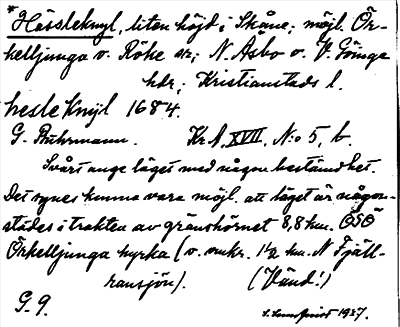 *Hässleknyl, liten höjd i Skåne; möjl. Ör-
kelljunga o. Röke sr; N. Åsbo o. V. Göinge
hdr; Kristianstads l.
hesle Knÿl 1684.
G. Buhrmann. Kr.A. XVII, N:o 5, b.
Svårt ange läget med någon bestämdhet.
Det synes kunna vara möjl. att läget är någon-
städes i trakten av gränshörnet 8,8 km. ÖSÖ
Örkelljunga kyrka (o. omkr. 1½ km. N Fjäll-
ransjön). (Vänd!)
G. 9. 1937.